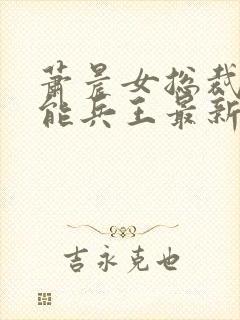 萧晨女总裁
能兵王最新
吉永克也